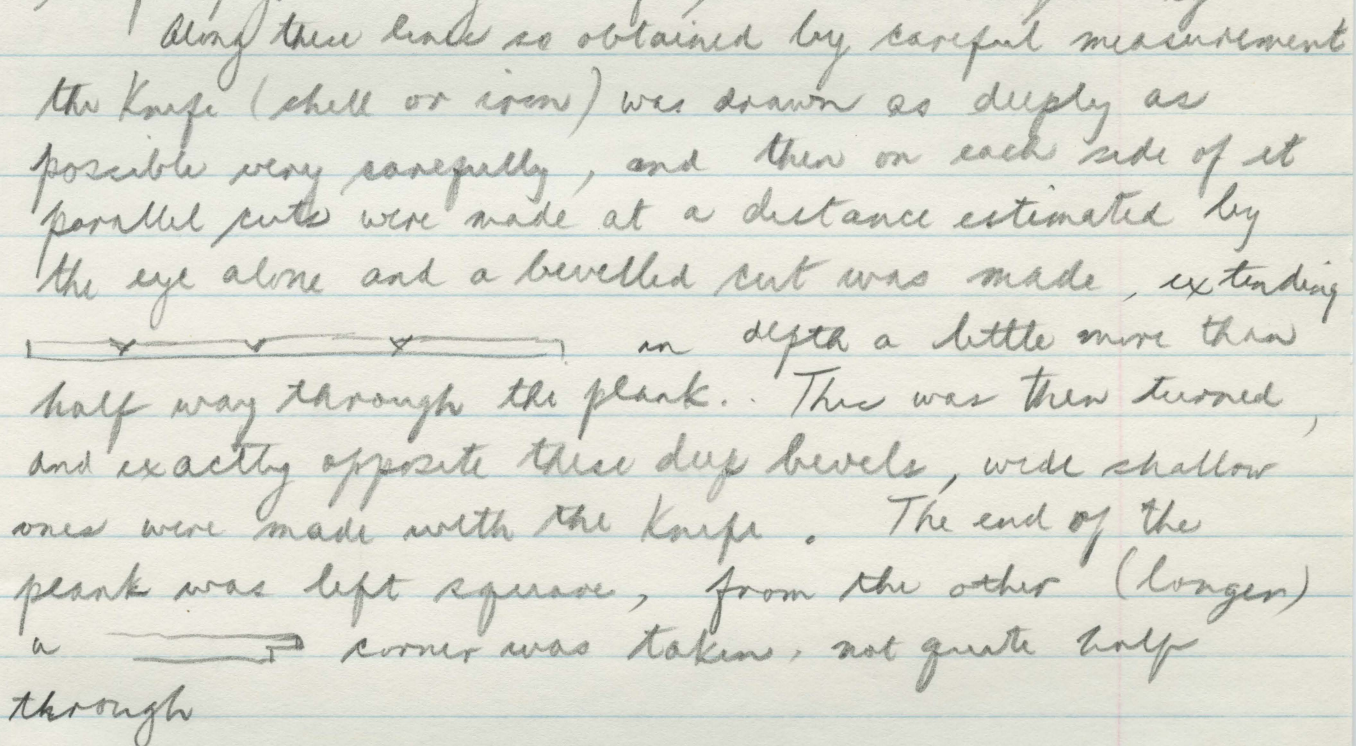 Along these lines so obtained by careful measurement
the Knife (shell or iron) was drawn as deeply as
possible very carefully, and then on each side of it
parallel cuts were made at a distance estimated by
the eye alone and a bevelled cut was made, extending
in depth a little more than
half way through the plank. This was then turned,
and exactly opposite these deep bevels, wide shallow
ones were made with the Knife. The end of the
plank was left square, from the other (longer)
a corner was taken, not quite half
through